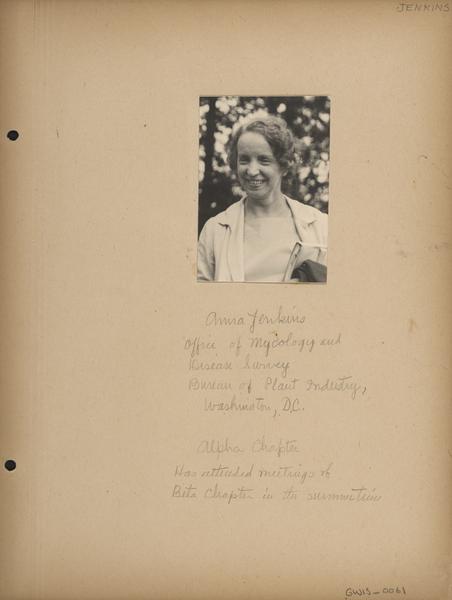 JENKINS
Anna Jenkins
Office of Mycology and
Disease Survey
Bureau of Plant Industry,
Washington, D.C.
Alpha Chapter
Has attended meetings of
Beta Chapter in the summertime
GWIS-0061